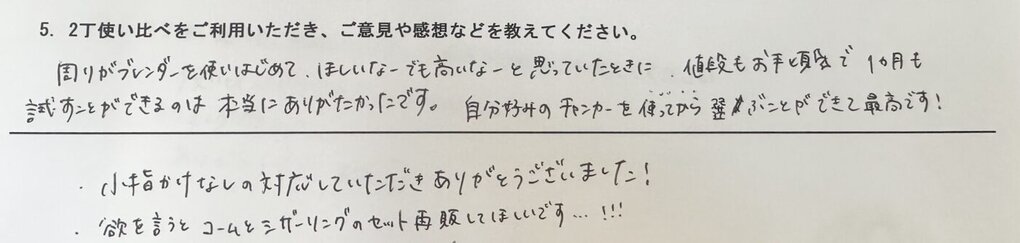 5. 2丁使い比べをご利用いただき、ご意見や感想などを教えてください。
周りがブレンダーを使いはじめて、ほしいなーでも高いなーと思っていたときに、値段もお手頃で1ヶ月も
試すことができるのは本当にありがたかったです。自分好みのチャンカーを使ってから選ぶことができて最高です!
・小指かけなしの対応していただきありがとうございました!
・欲を言うとコームとシザーリングのセット再販してほしいです…!!!